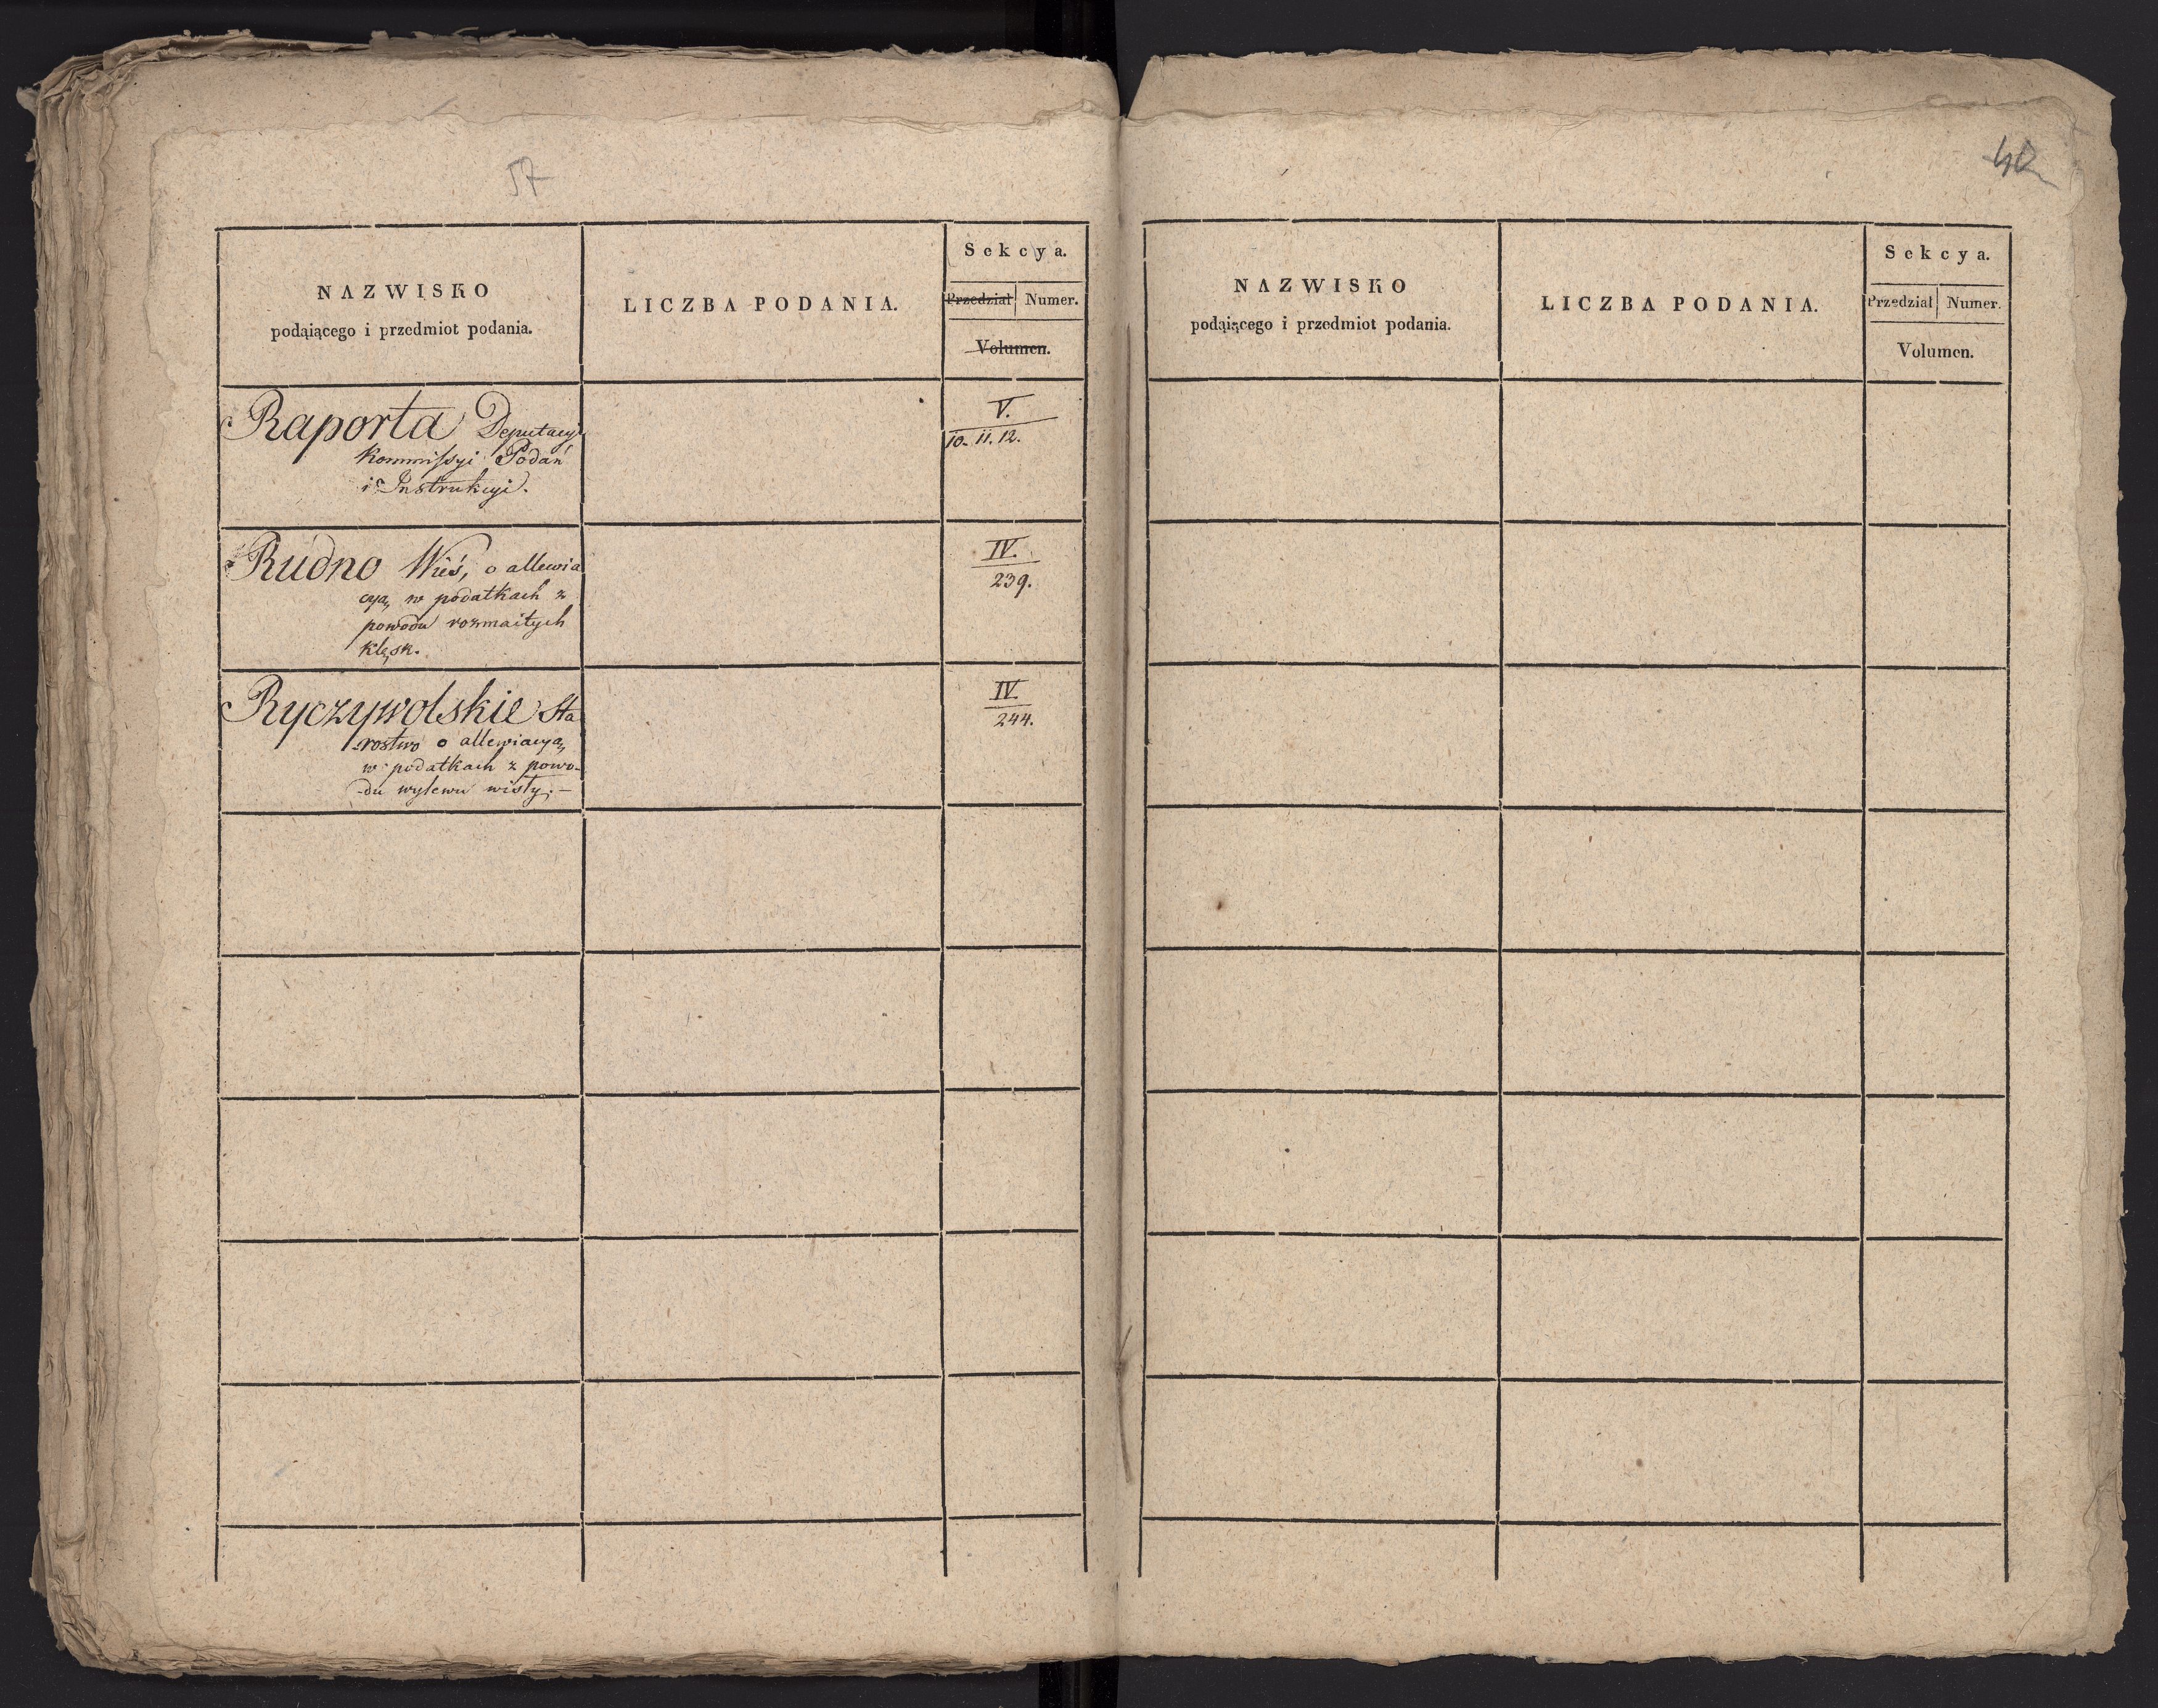 57
NAZWISKO
podąiącego i przedmiot podania.
LICZBA PODANIA.
Sekcya.
Przedział Numer.
Volumen.
Raporta Deputacyi
Kommissyi Podań
i Instrukcyi.
V.
10. 11. 12.
Rudno Wieś, o allewia
cyą w podatkach z
powodu rozmaitych
klęsk.
IV.
239.
Ryczywolskie Sta
rostwo o allewiacyą
w podatkach z powo-
du wylewu wisły. –
IV.
244.
NAZWISKO
podąiącego i przedmiot podania.
LICZBA PODANIA.
Sekcya.
Przedział Numer.
Volumen.